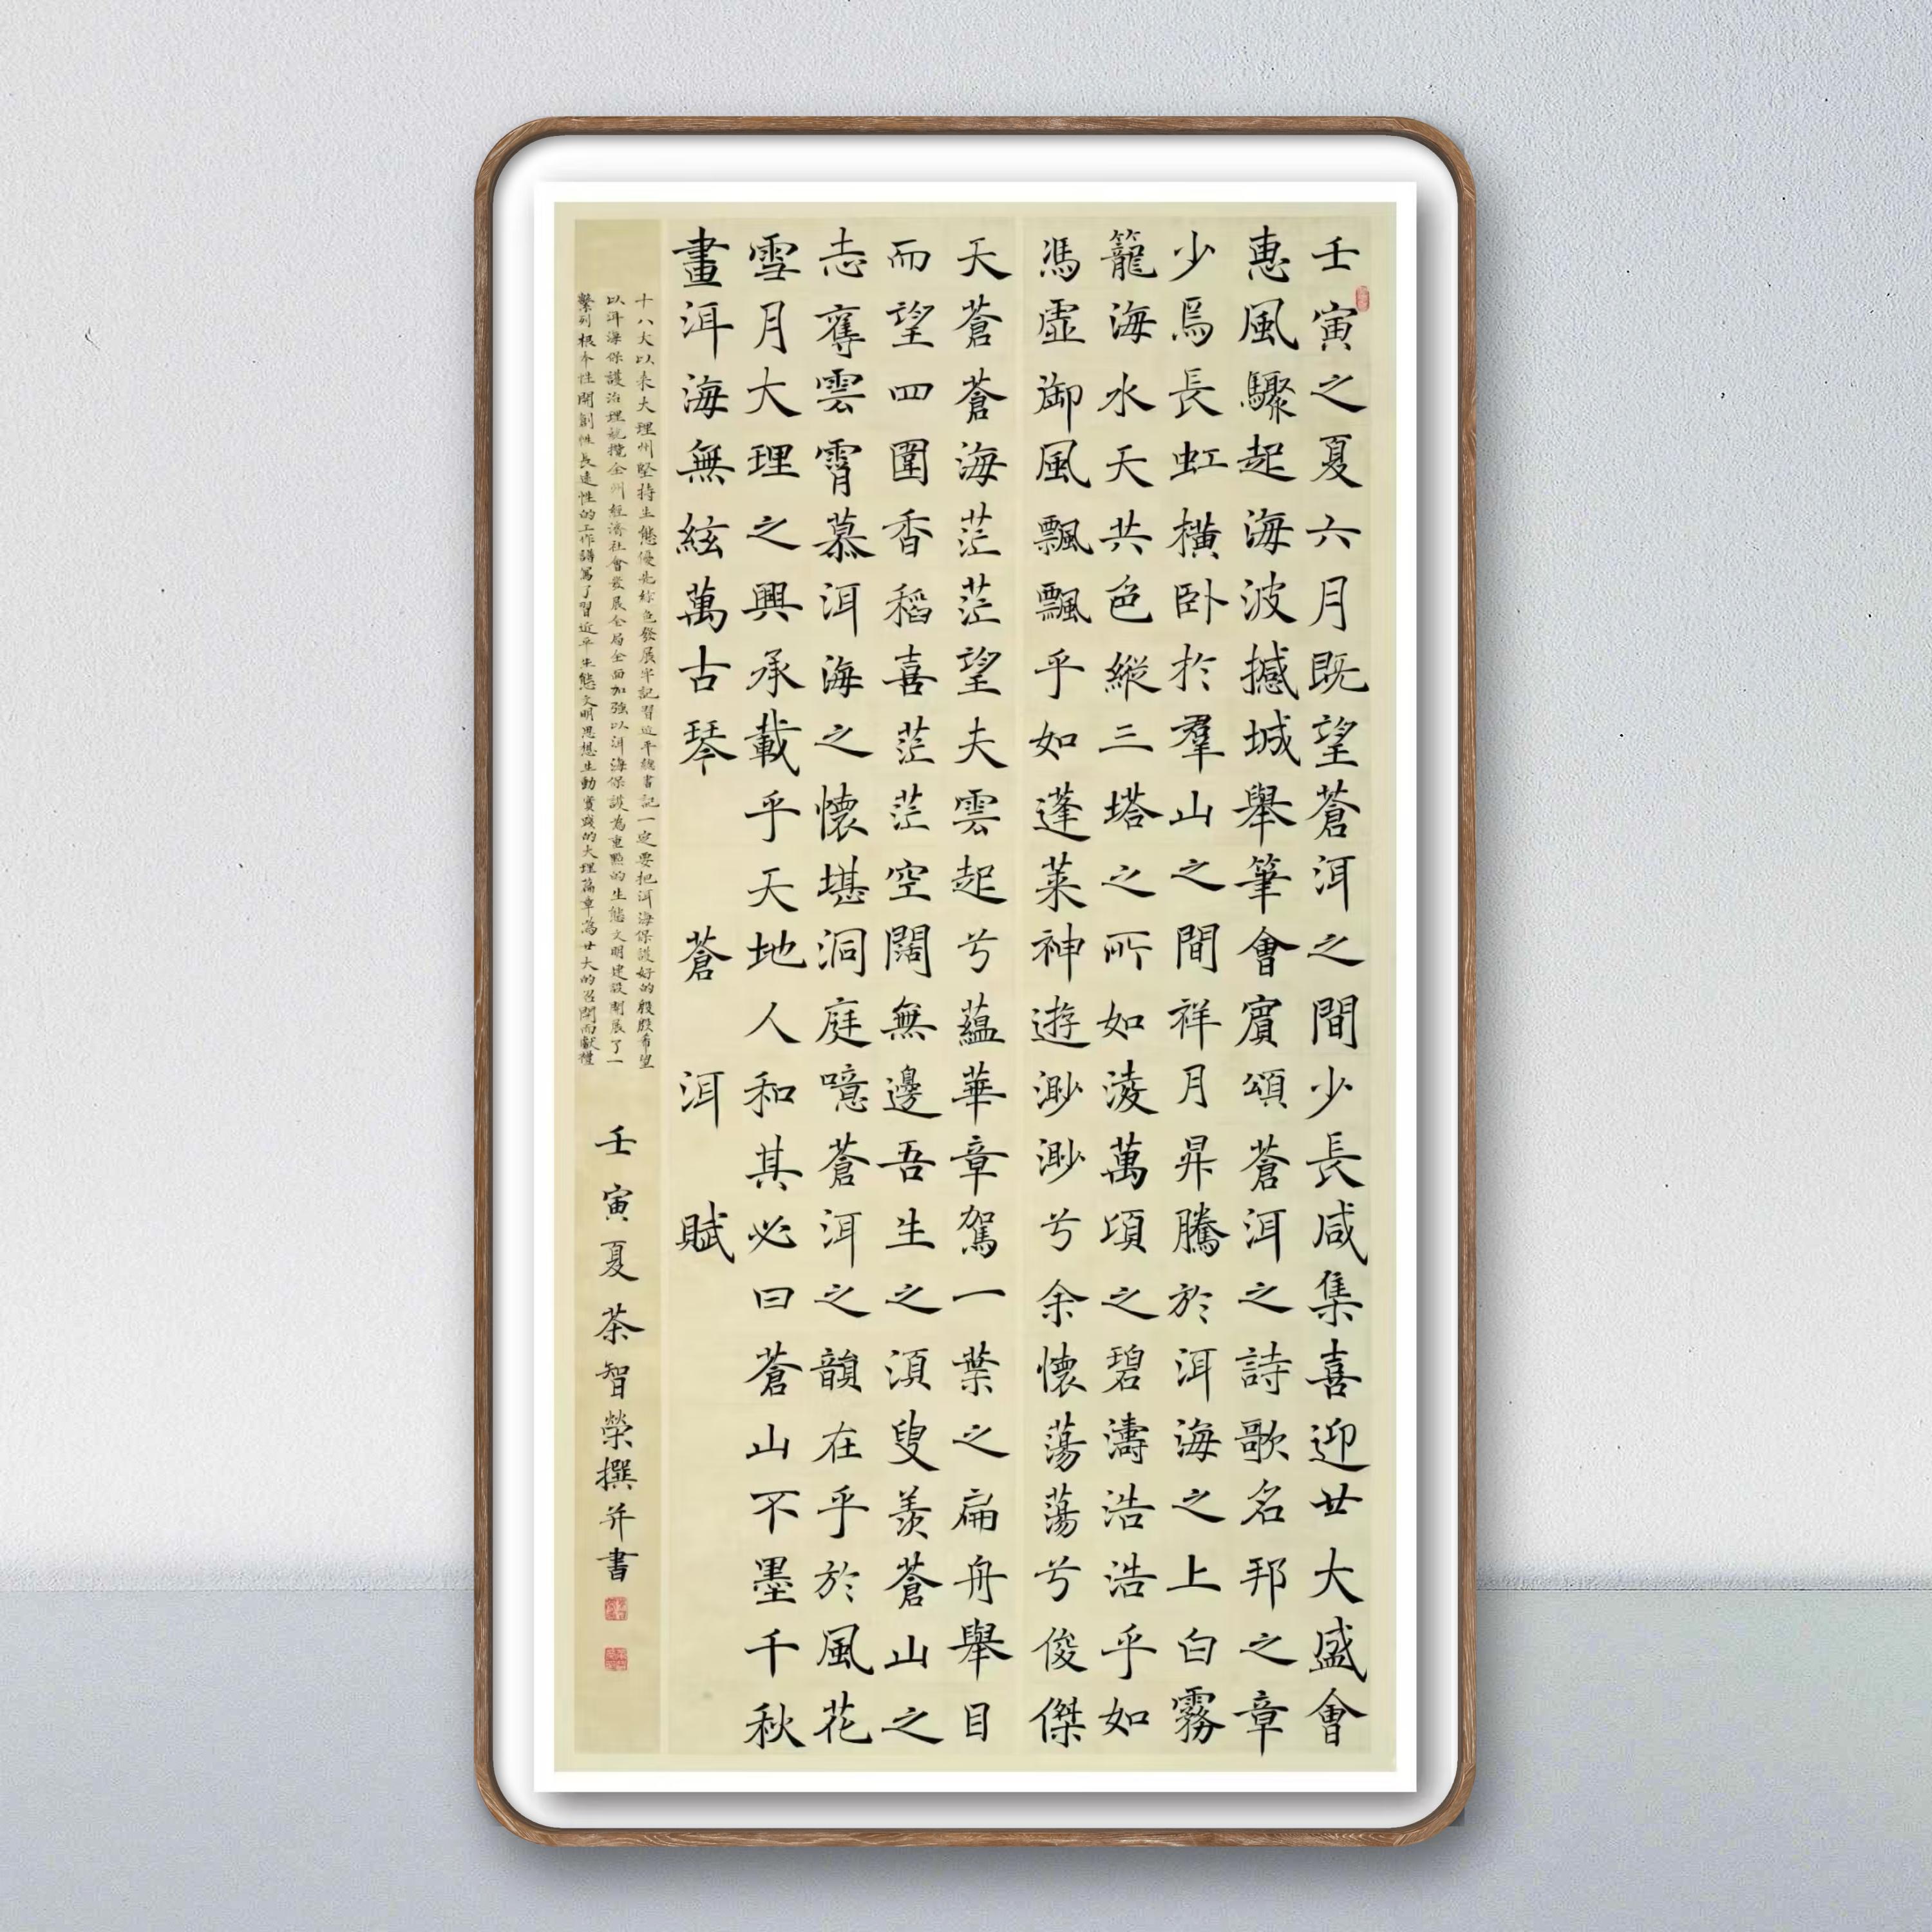 壬寅之夏六月既望蒼洱之間少長咸集喜迎廿大盛會
惠風驟起海波撼城舉筆會賓頌蒼洱之詩歌名邦之章
少焉長虹橫卧於羣山之間祥月昇騰於洱海之上白霧
籠海水天共色縱三塔之所如淩萬頃之碧濤浩浩乎如
馮虛御風飄飄乎如蓬萊神遊渺渺兮余懷蕩蕩兮俊傑
天蒼蒼海茫茫望夫雲起兮蘊華章駕一葉之扁舟舉目
而望四圍香稻喜茫茫空闊無邊吾生之須叟羨蒼山之
志奪雲霄慕洱海之懷堪洞庭噫蒼洱之韻在乎於風花
雪月大理之興承載乎天地人和其必曰蒼山不墨千秋
畫洱海無絃萬古琴 蒼洱賦
十八大以来大理州堅持生態優先綠色發展牢記習近平總書記一定要把洱海保護好的殷殷希望
以洱海保護治理統攬全州經濟社會發展全局全面加強以洱海保護為重點的生態文明建設開展了一
繫列根本性開創性長遠性的工作譜寫了習近平生態文明思想生動實踐的大理篇章為廿大的召開而獻禮
壬寅夏茶智榮撰并書